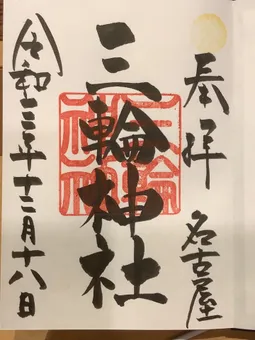 奉拝
名古屋
三輪神社
三輪神社
令和三年十二月十八日